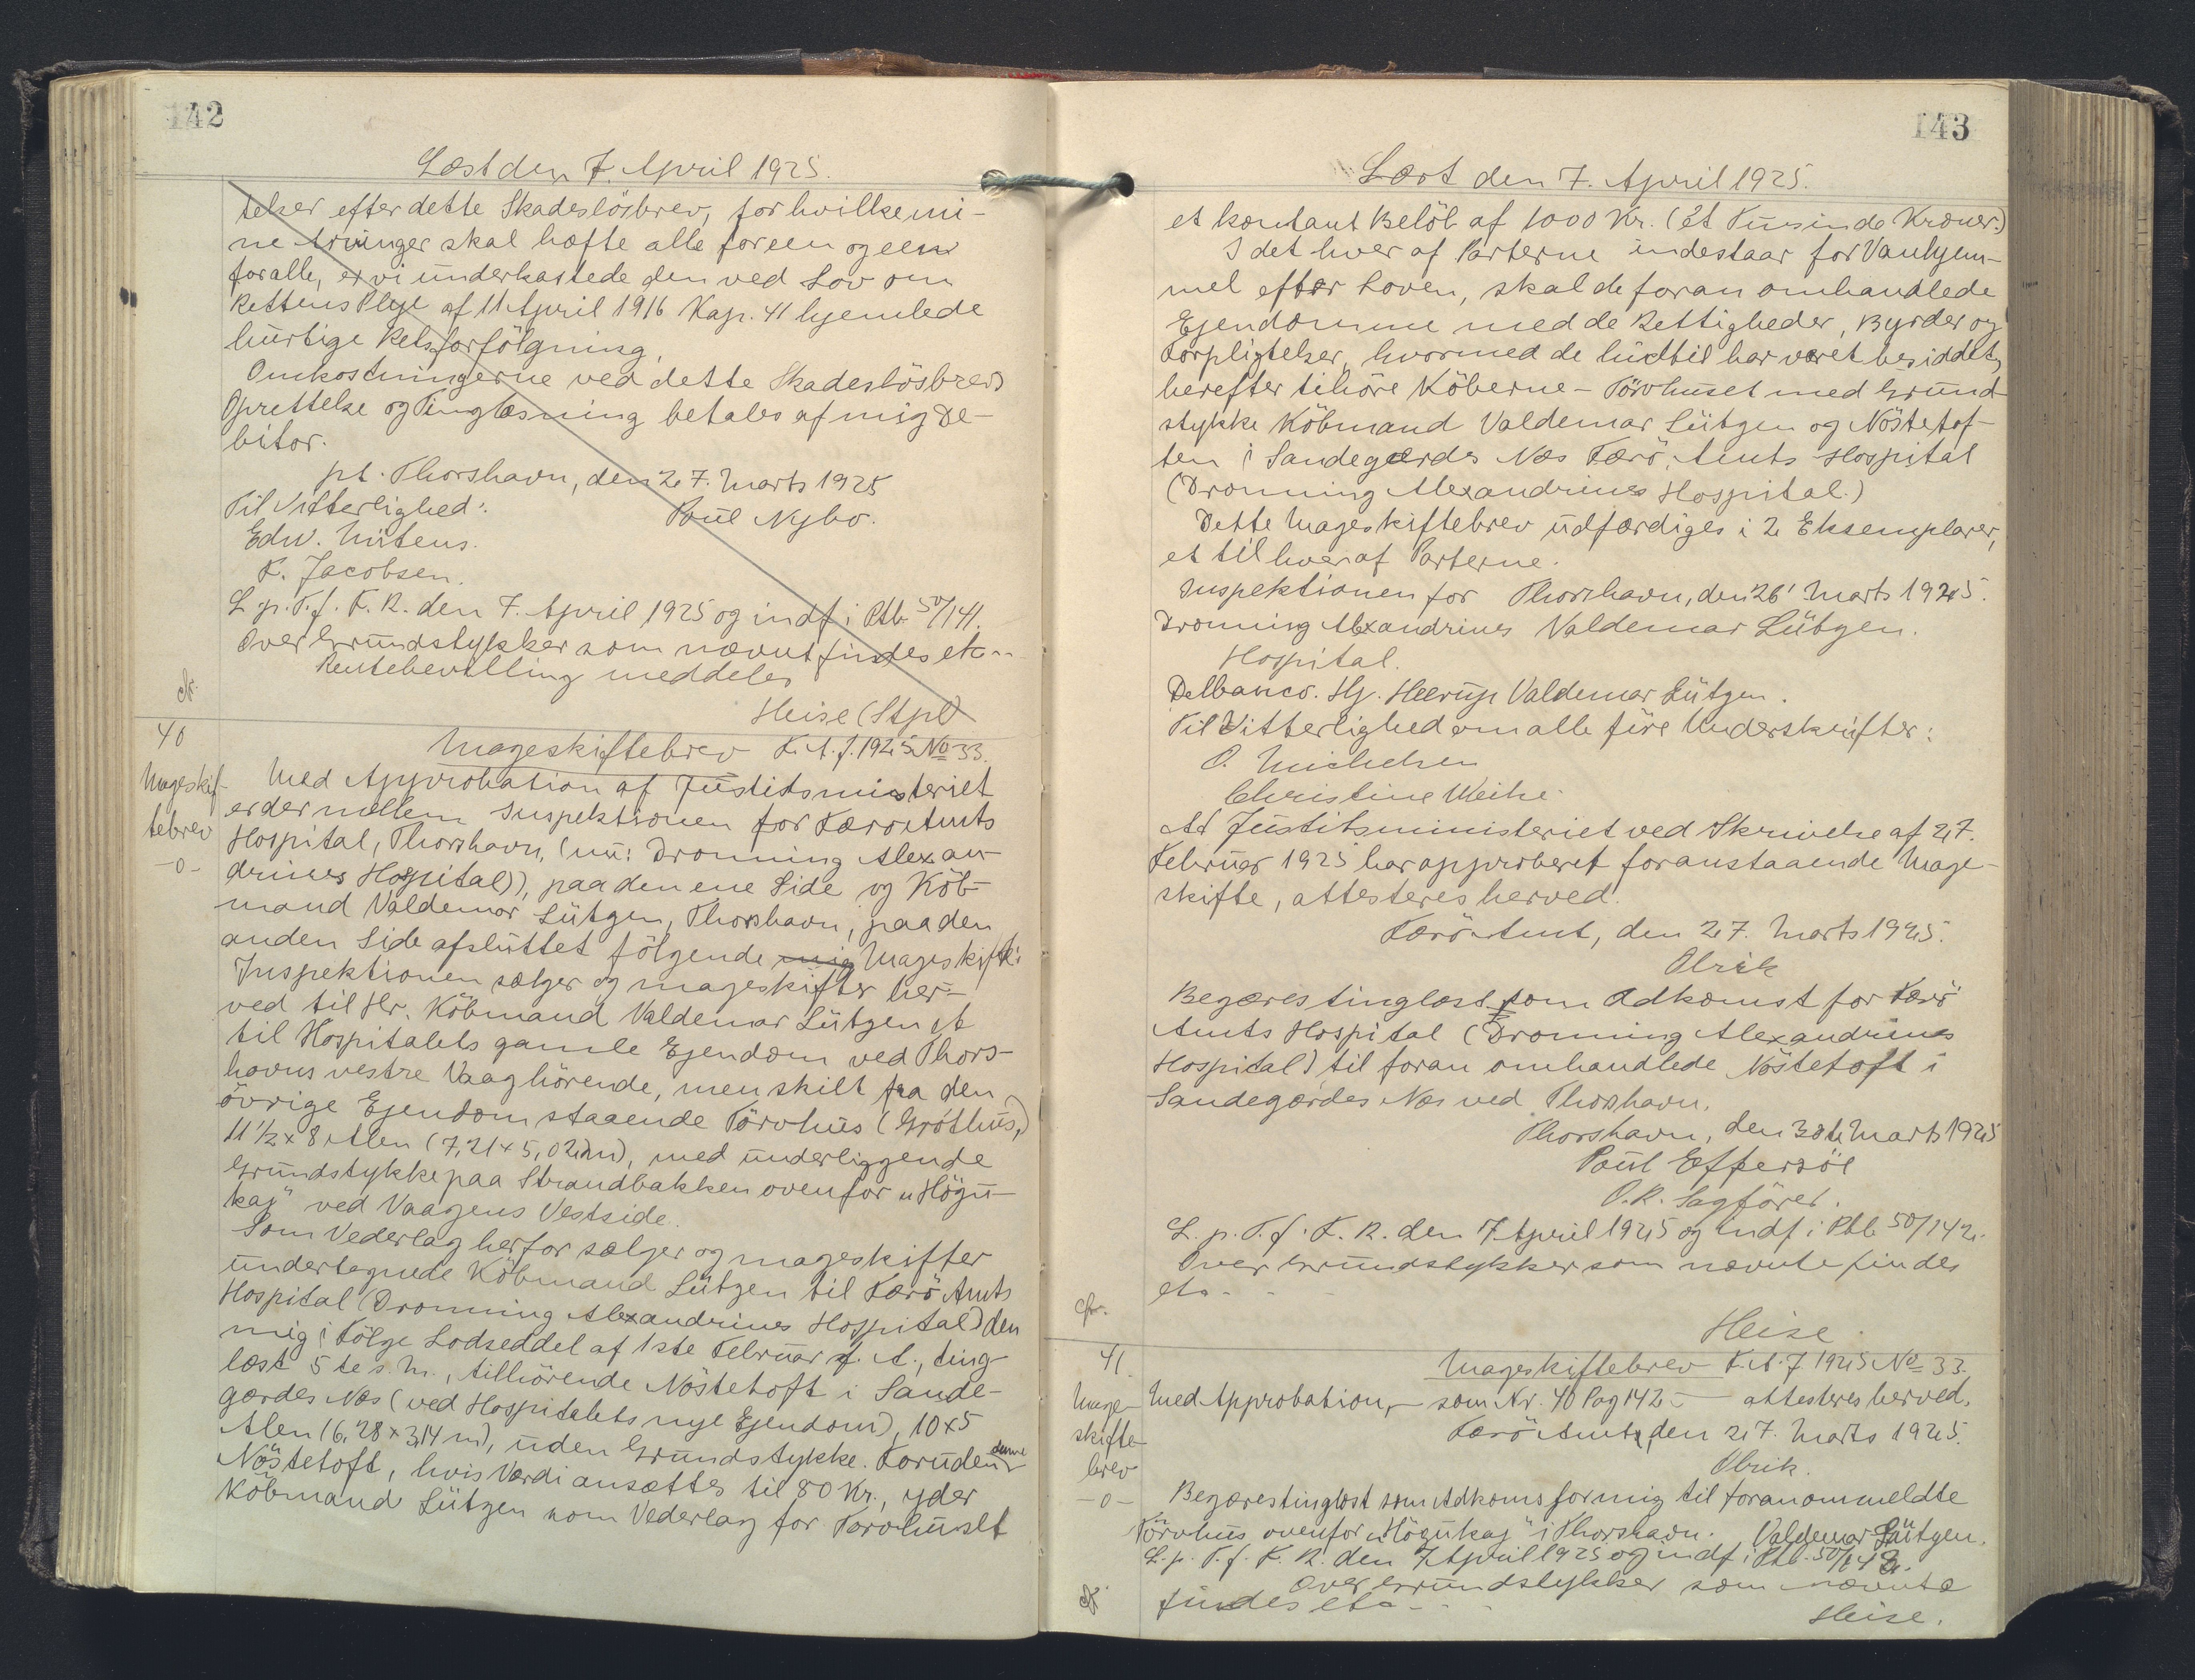 142
Læst den 7. April 1925.
telser efter dette Skadeslösbrev, for hvilke mi-
ne Arvinger skal hæfte alle for een og een
for alle, er vi underkastede den ved Lov om
Rettens Pleje af 11 April 1916 Kap. 41 hjemlede
hurtige Retsforfölgning.
Omkostningerne ved dette Skadeslösbrevs
Oprettelse og Tinglæsning betales af mig De-
bitor.
pt. Thorshavn, den 27. Marts 1925
Til Vitterlighed: Poul Nybo.
Edw. Mitens.
K. Jacobsen.
L. p. T. f. F. R. den 7. April 1925 og indf. i Ptb. 50/141.
Over Grundstykker som nævnt findes etc..
Rentebevilling meddeles
Heise (Stpl)
40
Mageskiftebrev K. A. f. 1925 No 33.
Mageskif-
tebrev
-o-
Med Approbation af Justitsministeriet
er der mellem Inspektionen for Færö Amts
Hospital, Thorshavn, (nu: Dronning Alexan-
drines Hospital)), paa den ene Side og Köb-
mand Valdemar Lützen, Thorshavn, paa den
anden Side afsluttet fölgende mig Mageskifte:
Inspektionen sælger og mageskifter her-
ved til Hr. Köbmand Valdemar Lützen et
til Hospitalets gamle Ejendom ved Thors-
havns vestre Vaag hörende, men skilt fra den
övrige Ejendom staaende Törvhus (Gróthús,)
11 1/2 x 8 Alen (7,21 x 5,02 m), med underliggende
Grundstykke paa Strandbakken ovenfor "Högu-
kaj" ved Vaagens Vestside.
Som Vederlag herfor sælger og mageskifter
undertegnede Köbmand Lützen til Færö Amts
Hospital (Dronning Alexandrines Hospital) den
mig i Fölge Lodseddel af 1ste Februar f. A., ting-
læst 5te s. M., tilhörende Nöstetoft i Sande-
gærdes Næs (ved Hospitalets nye Ejendom), 10 x 5
Alen (6,28 x 3,14 m), uden Grundstykke. Foruden denne
Nöstetoft, hvis Værdi ansættes til 80 Kr., yder
Köbmand Lützen som Vederlag for Törvhuset
143
Læst den 7. April 1925.
et kontant Belöb af 1000 Kr. (ét Tusinde Kroner.)
I det hver af Parterne indestaar for Vanhjem-
mel efter Loven, skal de foran omhandlede
Ejendomme med de Rettigheder, Byrder og
Forpligtelser, hvormed de hidtil har været besiddet,
herefter tilhöre Köberne - Törvhuset med Grund-
stykke Köbmand Valdemar Lützen og Nöstetof-
ten i Sandegærdes Næs Færö Amts Hospital
(Dronning Alexandrines Hospital.)
Dette Mageskiftebrev udfærdiges i 2 Eksemplarer,
et til hver af Parterne.
Inspektionen for Thorshavn, den 26' Marts 1925.
Dronning Alexandrines Valdemar Lützen.
Hospital.
Delbanco. Hj. Heerup Valdemar Lützen.
Til Vitterlighed om alle fire Underskrifter:
O. Michelsen
Christine Weihe.
At Justitsministeriet ved Skrivelse af 27.
Februar 1925 har approberet foranstaaende Mage-
skifte, attesteres herved.
Færö Amt, den 27. Marts 1925.
Olrik
Begæres tinglæst som Adkomst for Færö
Amts Hospital (Dronning Alexandrines
Hospital) til foran omhandlede Nöstetoft i
Sandegærdes Næs ved Thorshavn.
Thorshavn, den 30te Marts 1925
Poul Effersöe
O. R. Sagförer.
L. p. T. f. F. R. den 7 April 1925 og indf. i Ptb. 50/142.
Over Grundstykker som nævnte findes
etc - - -
Heise.
41.
Mageskiftebrev K. A. f. 1925 No 33.
Mage-
skifte-
brev
-o-
Med Approbation, - som Nr. 40 Pag 142 - attesteres herved.
Færö Amt, den 27. Marts 1925.
Olrik.
Begæres tinglæst som Adkoms for mig til foranommeldte
Törvhus ovenfor "Högukaj" i Thorshavn. Valdemar Lützen.
L. p. T. f. F. R. den 7 April 1925 og indf. i Ptb. 50/142.
Over Grundstykker som nævnte
findes etc - - -
Heise.